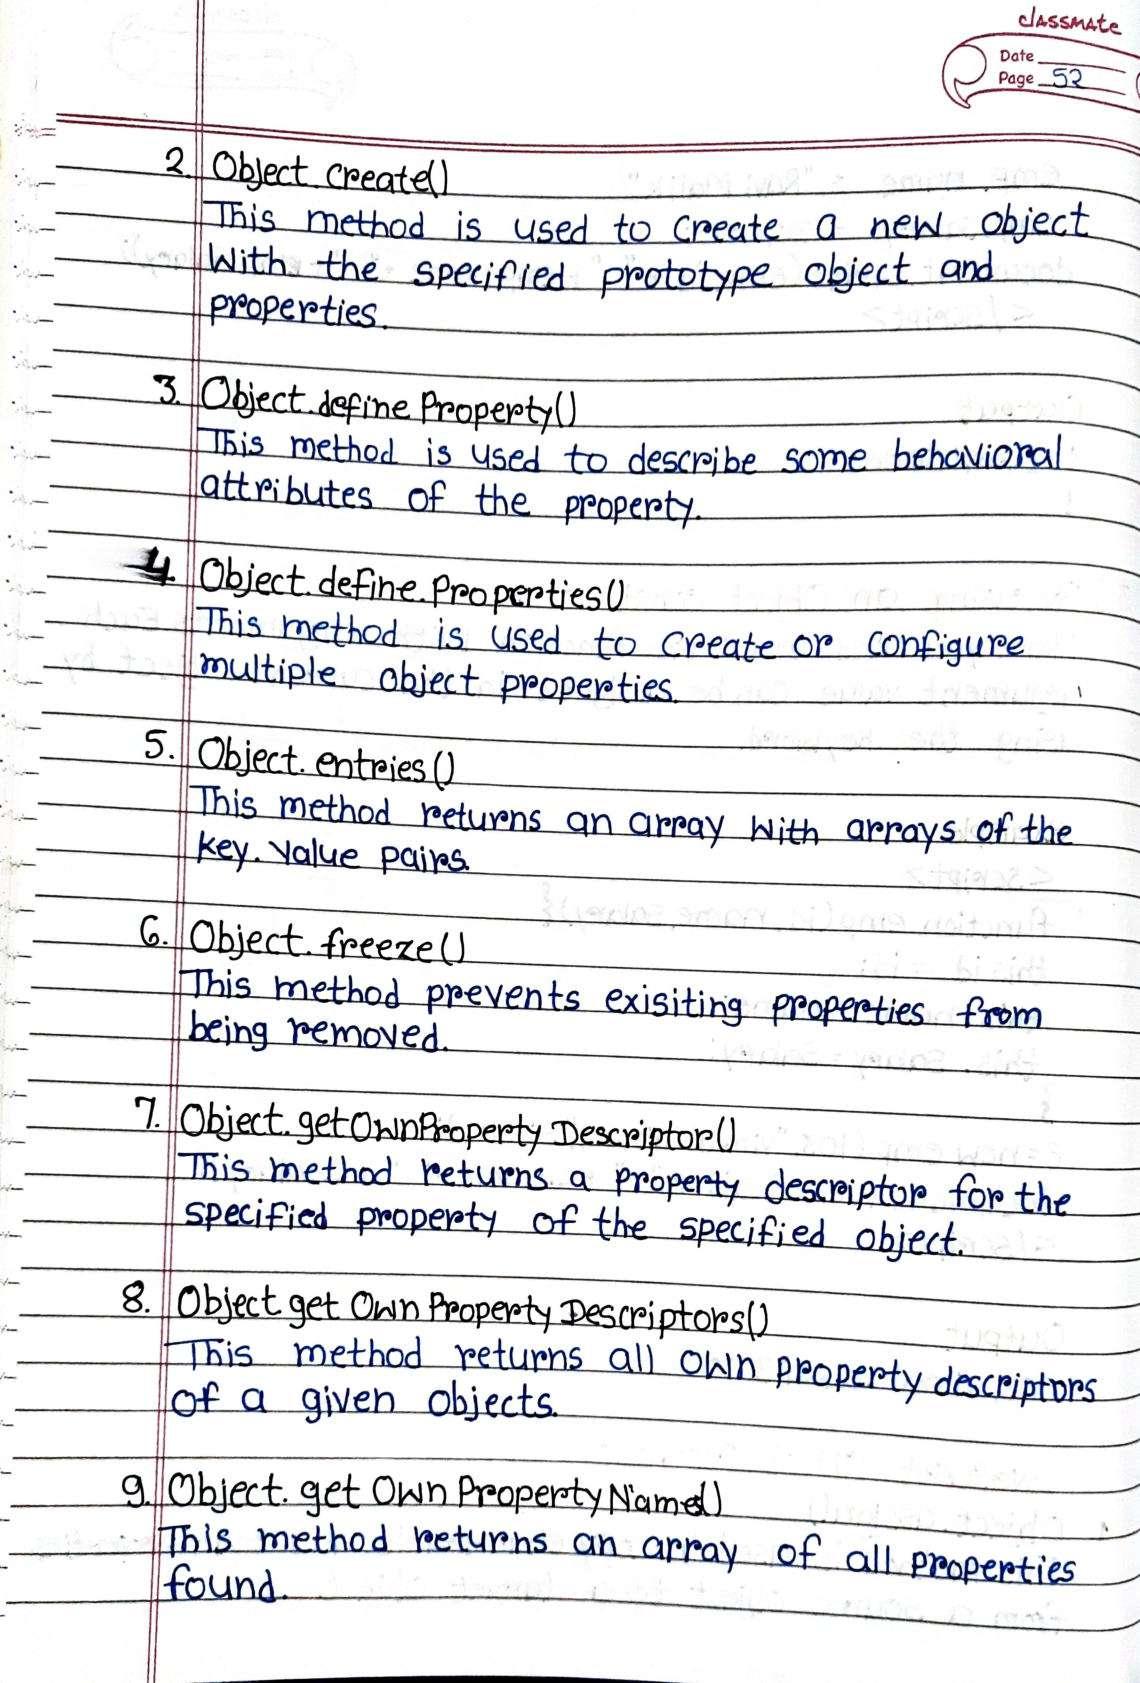 classmate
Date
Page 52
2. Object.create()
This method is used to create a new object
with the specified prototype object and
properties.
3. Object.define Property()
This method is used to describe some behavioral
attributes of the property.
4. Object.define.Properties()
This method is used to create or configure
multiple object properties.
5. Object.entries()
This method returns an array with arrays of the
key. value pairs.
6. Object.freeze()
This method prevents exisiting properties from
being removed.
7. Object.getOwnProperty Descriptor()
This method returns a property descriptor for the
specified property of the specified object.
8. Object get Own Property Descriptors()
This method returns all own property descriptors
of a given objects.
9. Object.get Own Property Names()
This method returns an array of all properties
found.